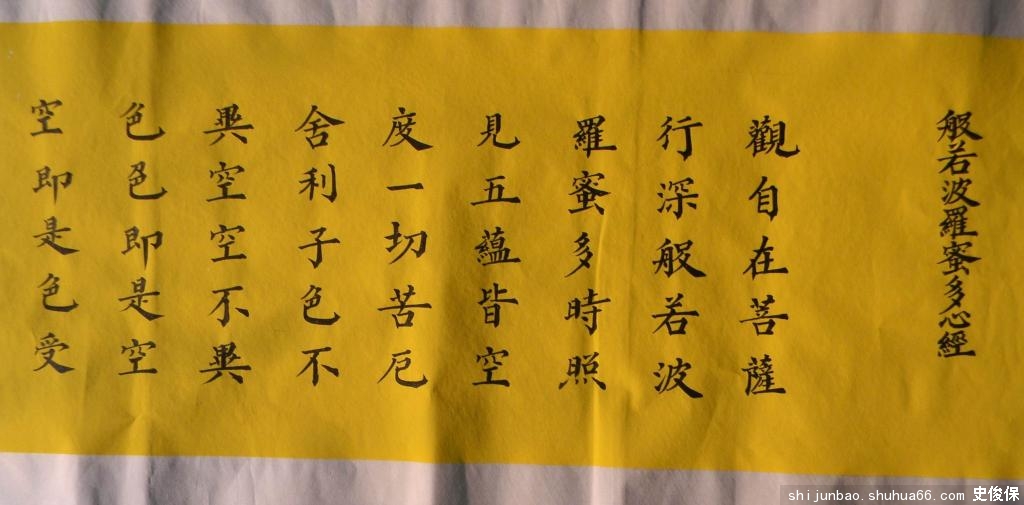 般若波羅蜜多心經
觀自在菩薩
行深般若波
羅蜜多時照
見五蘊皆空
度一切苦厄
舍利子色不
異空空不異
色色即是空
空即是色受
shijunbao.shuhua66.com 史俊保